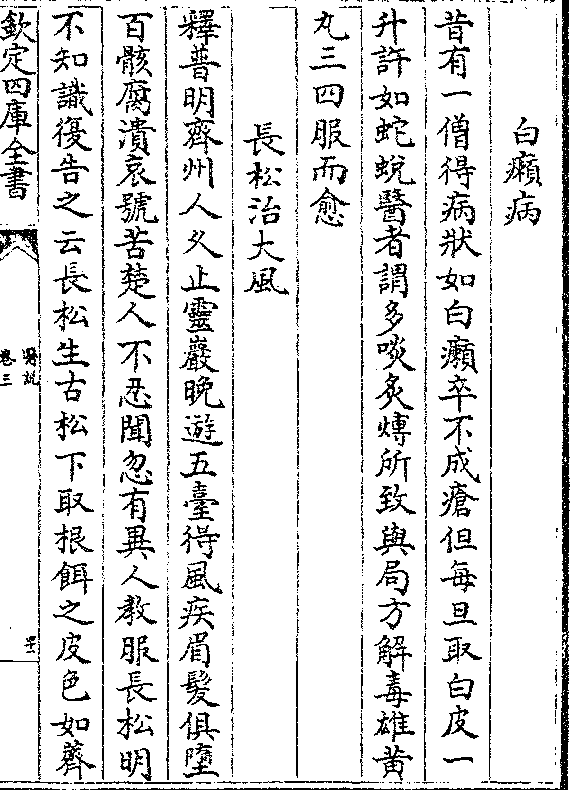 白癩病
昔有一僧得病狀如白癩卒不成瘡但每旦取白皮一
升許如蛇蛻醫者謂多啖炙煿所致與局方解毒雄黄
丸三四服而愈
長松治大風
釋普明齊州人久止靈巖晚遊五臺得風疾眉髮俱墮
百骸腐潰哀號苦楚人不忍聞忽有異人教服長松明
不知識復告之云長松生古松下取根餌之皮色如薺
欽定四庫全書
醫說
卷三